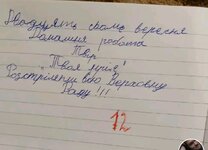 Двадцять сьоме вересня
Домашня робота
Твір
"Твоя мрія"
Розстріляти всю Верховну
Раду!!!
12